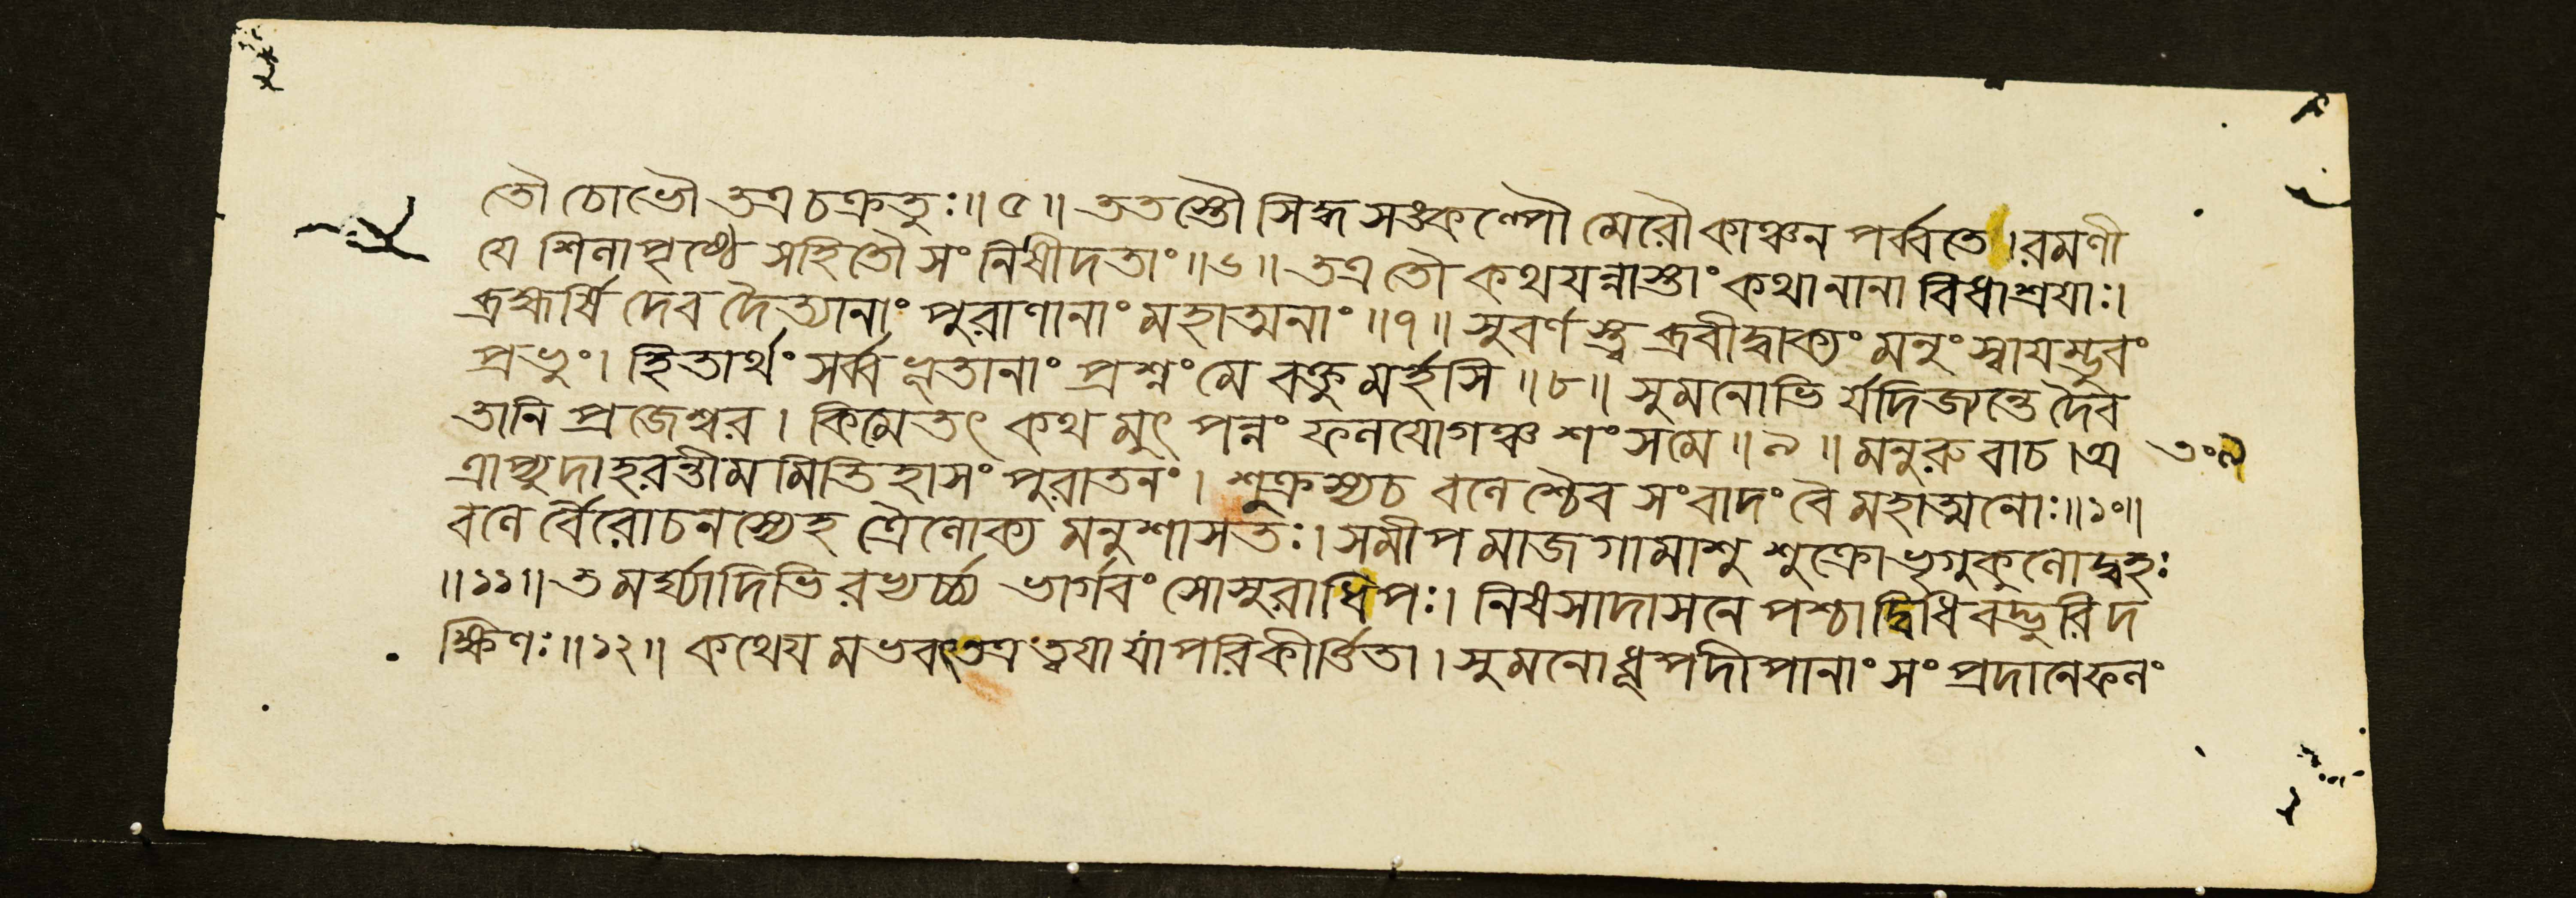 তৌ চোভৌ তত্র চক্রতুঃ॥ ৫॥ ততস্তৌ সিদ্ধ সঙ্কল্পৌ মেরৌ কাঞ্চন পর্ব্বতে। রমণী
যে শিলাপৃষ্ঠে সহিতৌ সংনিষীদতাং॥ ৬॥ তত্র তৌ কথযন্নাস্তাং কথা নানা বিধাশ্রযাঃ।
ব্রহ্মর্ষি দেব দৈত্যানাং পুরাণানাং মহাত্মনাং॥ ৭॥ সুবর্ণ স্ত্বব্রবীদ্বাক্যং মনুং স্বাযম্ভুবং
প্রভুং। হিতার্থং সর্ব্ব ভূতানাং প্রশ্নং মে বক্তু মর্হসি॥ ৮॥ সুমনোভি র্যদিজ্যন্তে দৈব
তানি প্রজেশ্বর। কিমেতৎ কথ মুৎ পন্নং ফলযোগঞ্চ শংসমে॥ ৯॥ মনুরুবাচ। অ
ত্রাপ্যুদাহরন্তীম মিতিহাসং পুরাতনং। শুক্রস্যচ বলেশ্চৈব সংবাদং বৈ মহাত্মনোঃ॥ ১০॥
বলে র্বৈরোচনস্যেহ ত্রৈলোক্য মনুশাসতঃ। সমীপ মাজগামাশু শুক্রো ভৃগুকুলোদ্বহঃ
॥ ১১॥ ত মর্ঘ্যাদিভি রভ্যর্চ্চ্য ভার্গবং সোসুরাধিপঃ। নিষসাদাসনে পশ্চাদ্বিধি বদ্ভুরি দ
ক্ষিণঃ॥ ১২॥ কথেয মভবৎতত্র ত্বযা যা পরিকীর্ত্তিতা। সুমনো ধূপদীপানাং সংপ্রদানে ফলং